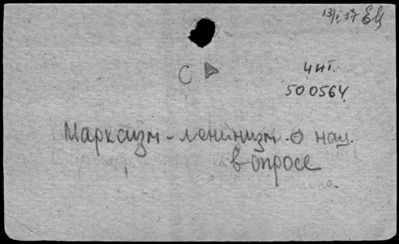 13/I 57
С
чит.
500564
Марксизм-ленинизм о нац.
вопросе